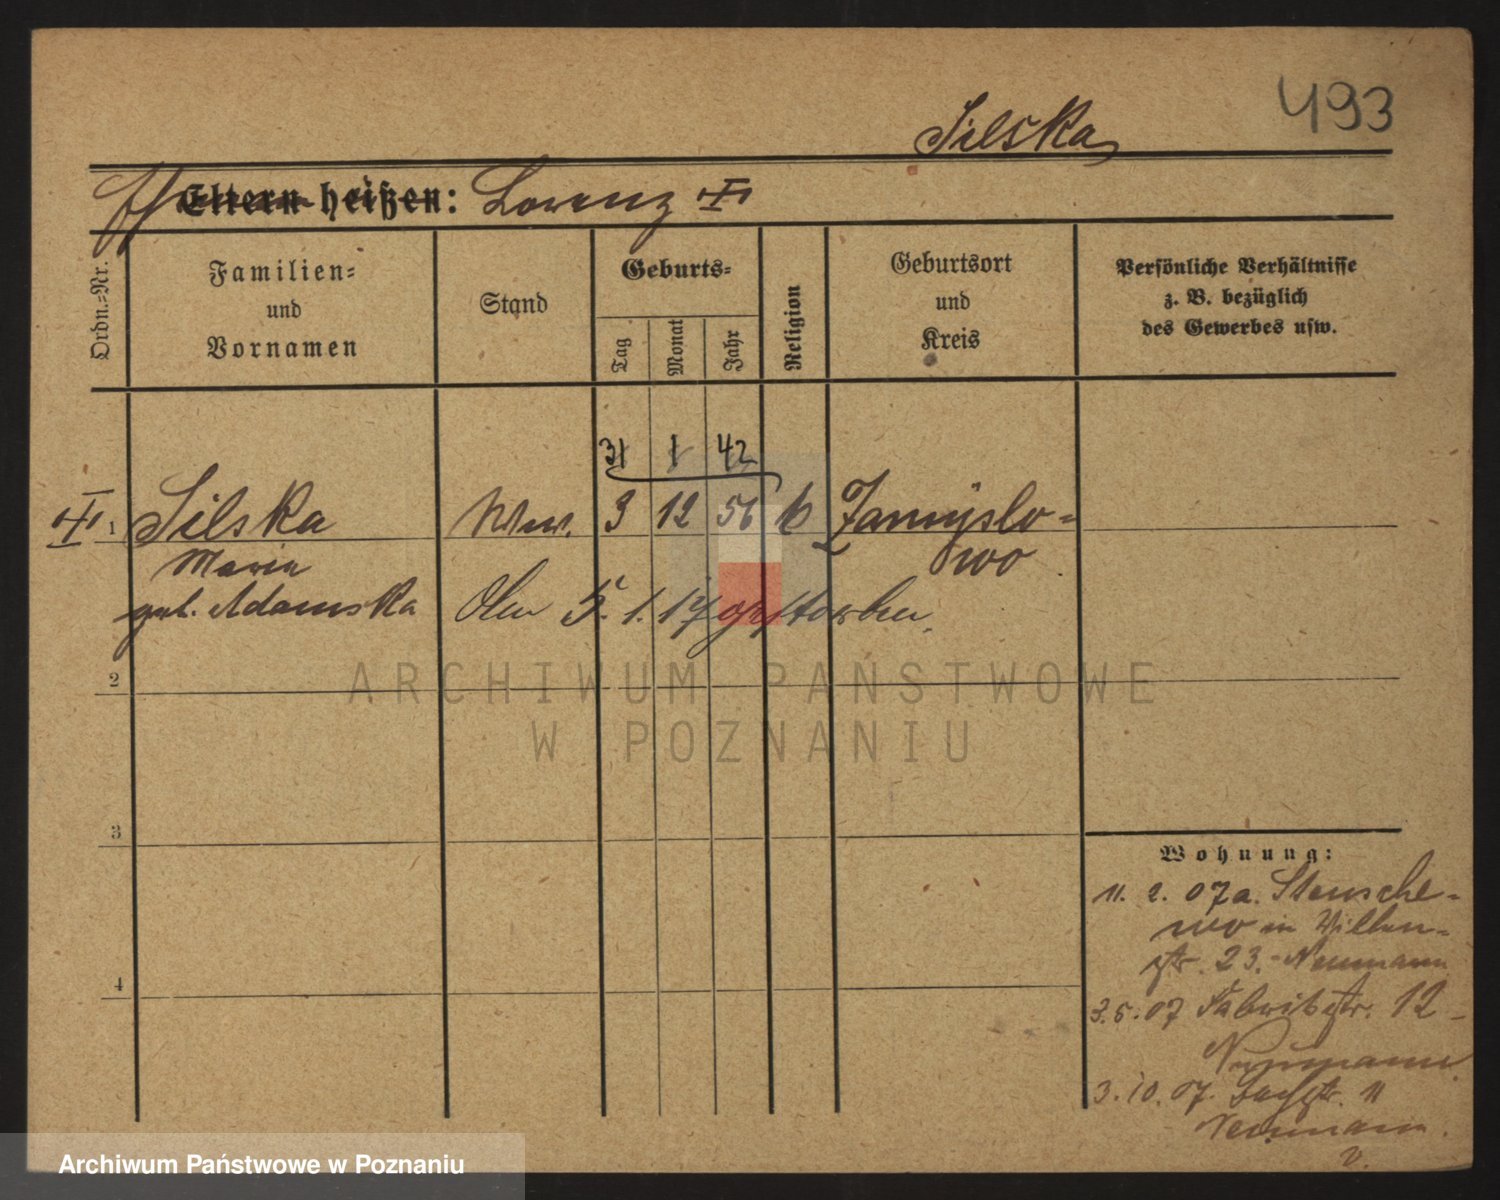 493
Silska
Eltern heißen: Lorenz
Ordn.-Nr.
Familien-
und
Vornamen
Stand
Geburts-
Tag
Monat
Jahr
Religion
Geburtsort
und
Kreis
Persönliche Verhältnisse
z. B. bezüglich
des Gewerbes usw.
31 1 42
1 Silska Ww. 3 12 56 k Zamyslo-
wo
Maria
geb. Adamska
Am 5. 1. 17 verstorben.
2
ARCHIWUM PAŃSTWOWE
W POZNANIU
3
Wohnung:
11. 2. 07 a. Stensche-
wo in
str. 23. Neumann
3. 5. 07 Fabrikstr. 12 -
Neumann.
3. 10. 07. Bachstr. 11
Neumann.
4
Archiwum Państwowe w Poznaniu